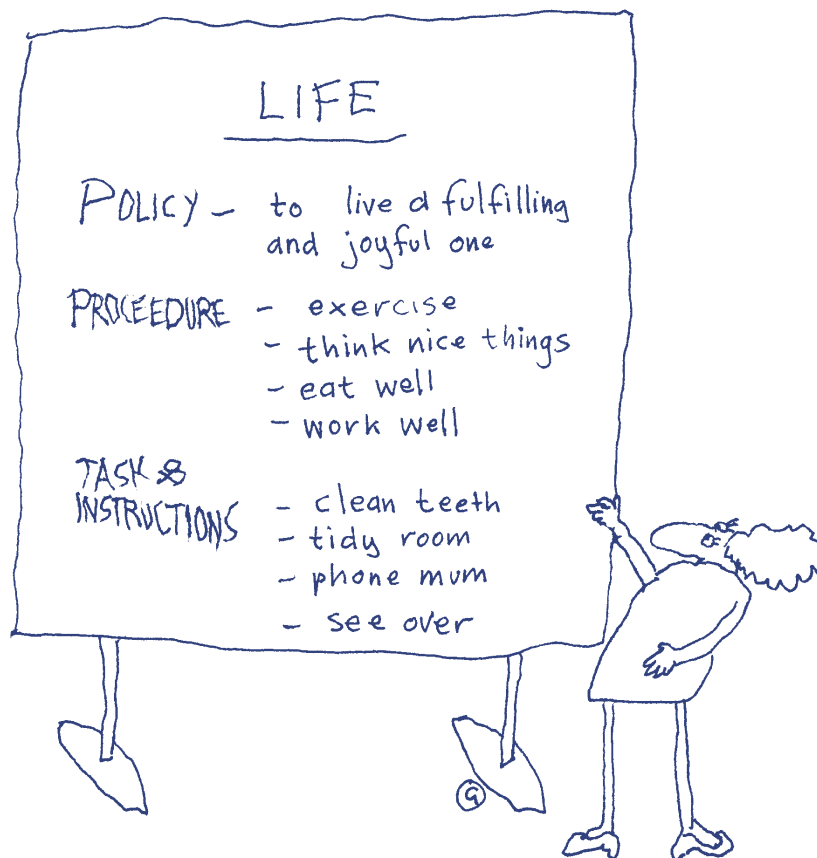 LIFE
POLICY - to live a fulfilling
and joyful one
PROCEEDURE - exercise
- think nice things
- eat well
- work well
TASK &
INSTRUCTIONS - clean teeth
- tidy room
- phone mum
- see over
G